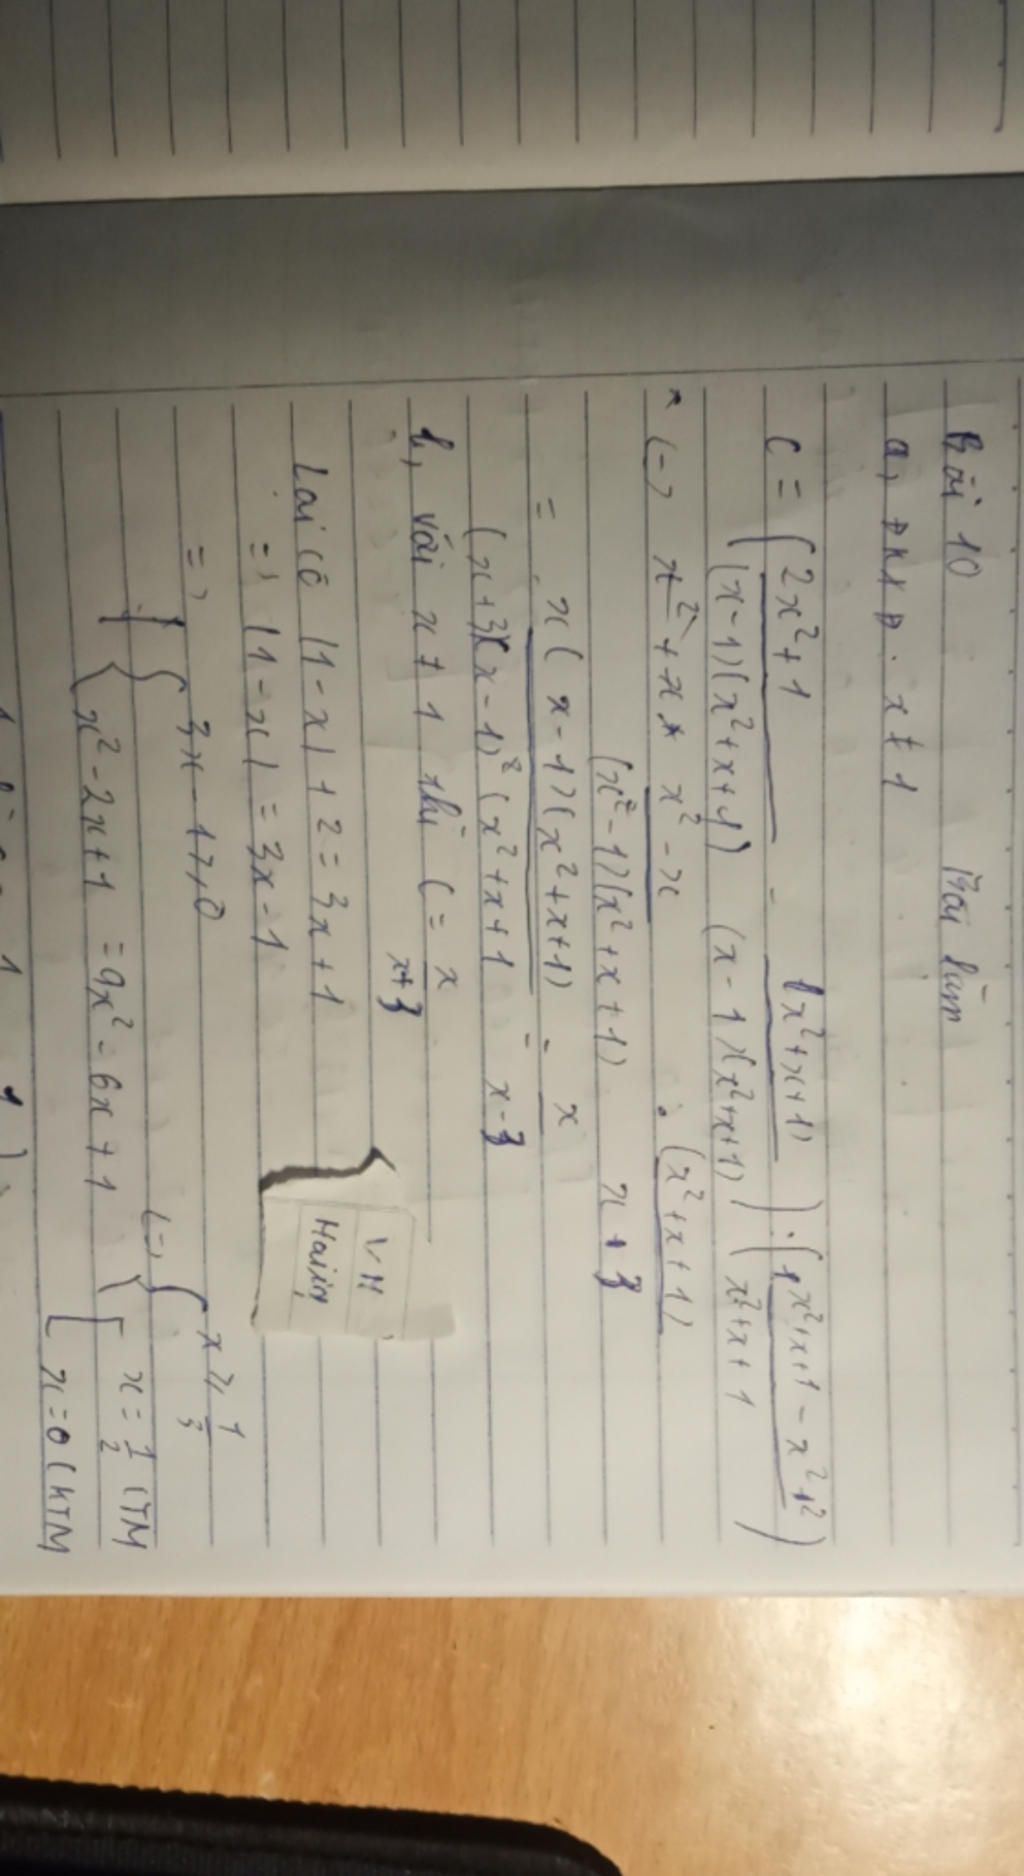 Bài 10 Bài làm
a, ĐKXĐ. x ≠ 1
C = ( 2x²+1 / (x-1)(x²+x+1) - 1(x²+x+1) / (x-1)(x²+x+1) ) : ( 1 x²+x+1 - x²+2 / x²+x+1 )
(=) x² + x x² - x / (x²-1)(x²+x+1) . (x²+x+1) / x+3
= x(x-1)(x²+x+1) / (x+3)(x-1)²(x²+x+1 = x / x-3
b, với x ≠ 1 thì C = x / x+3
Lại có |1-x| + 2 = 3x+1
=> |1-x| = 3x-1
=> { 3x-1 ≥ 0 (=) { x ≥ 1/3
{ x²-2x+1 = 9x²-6x+1 [ x = 1/2 (TM
[ x = 0 (KTM
VH